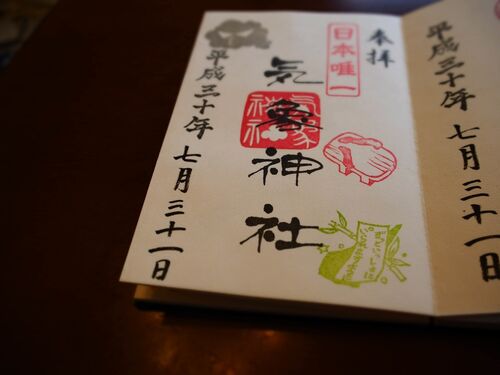 奉拝
日本唯一
気象神社
気象神社
平成三十年七月三十一日
平成三十年七月三十一日